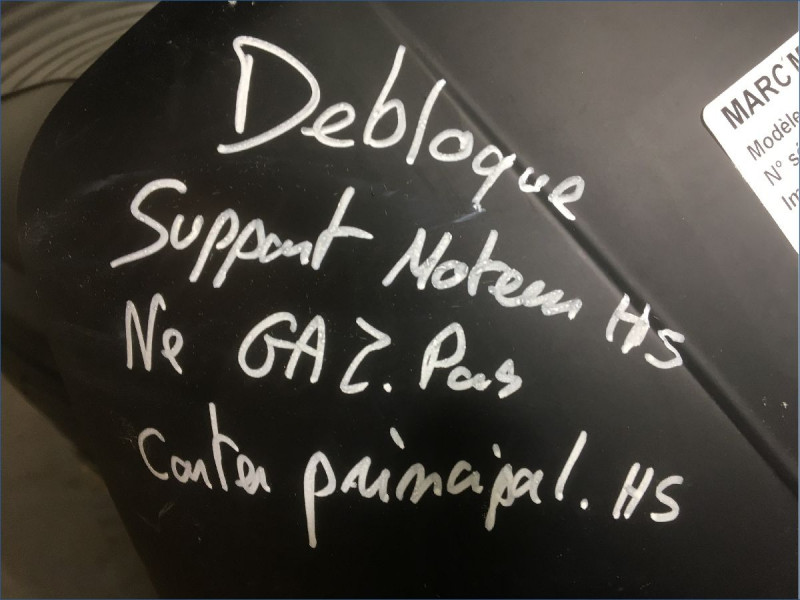 Debloque
Support Moteur HS
Ne GAZ. Pas
Carter principal. HS
MARC M
Modèle
N° sé
Im